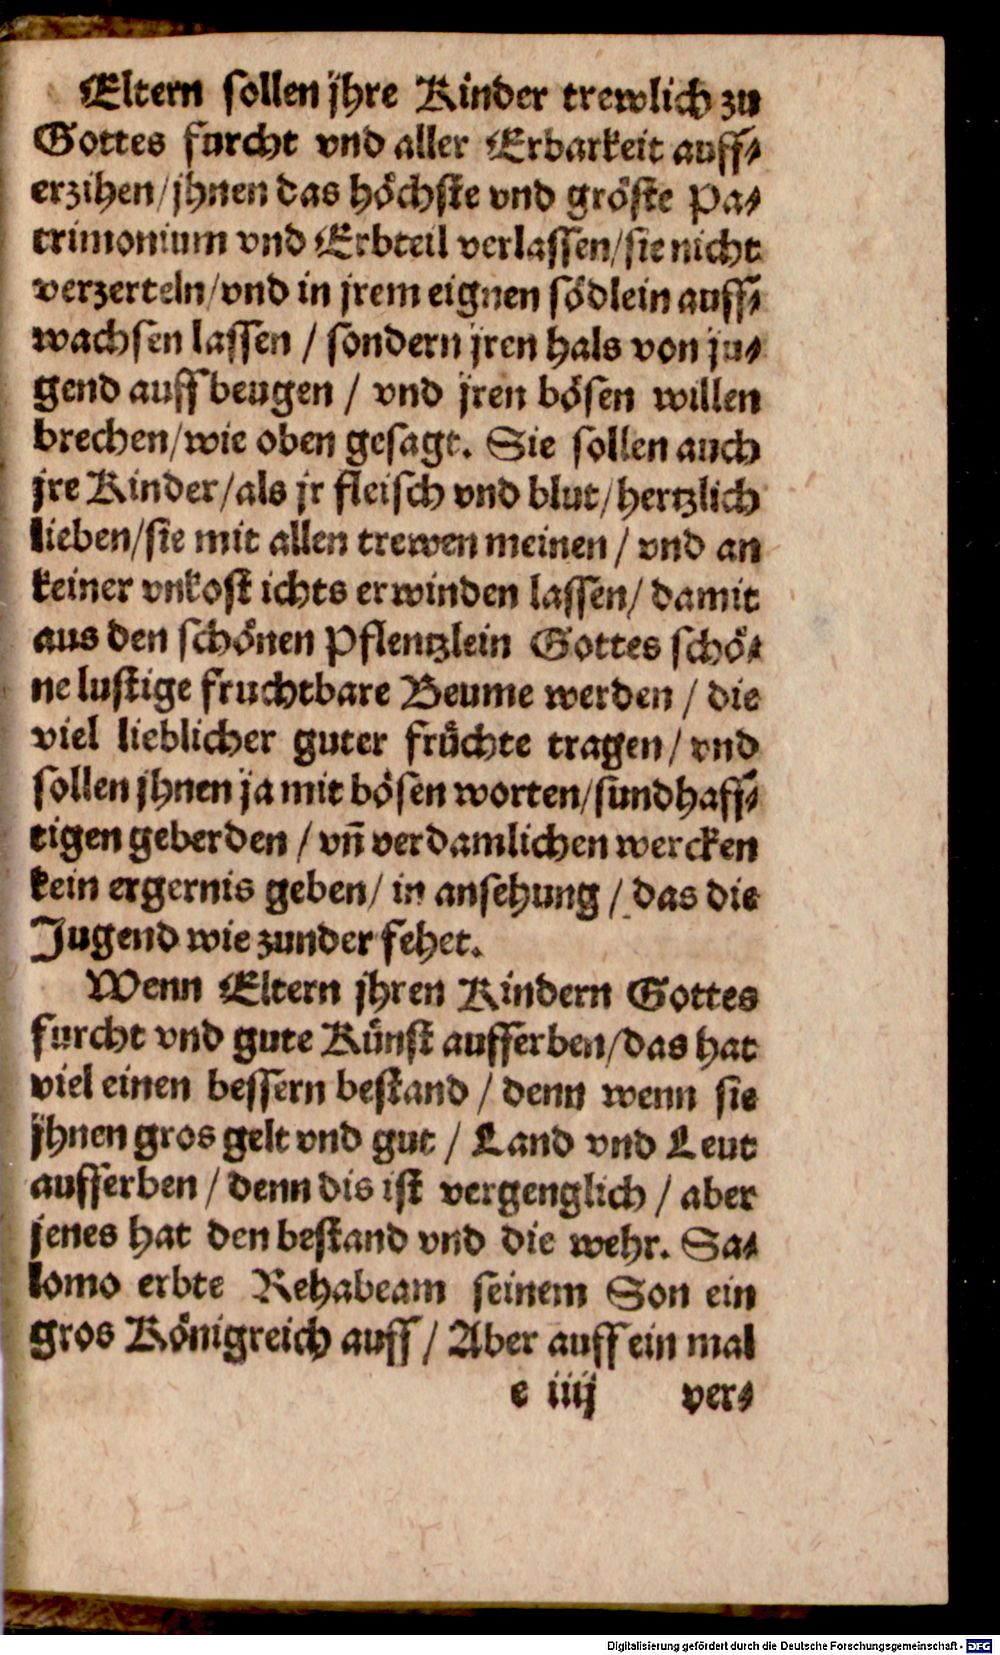 Eltern sollen jhre Kinder trewlich zu
Gottes furcht vnd aller Erbarkeit auff⸗
erzihen/jhnen das höchste vnd gröste Pa⸗
trimonium vnd Erbteil verlassen/sie nicht
verzerteln/vnd in jrem eignen södlein auff⸗
wachsen lassen / sondern jren hals von ju⸗
gend auff beugen / vnd jren bösen willen
brechen/wie oben gesagt. Sie sollen auch
jre Kinder/als jr fleisch vnd blut/hertzlich
lieben/sie mit allen trewen meinen / vnd an
keiner vnkost ichts erwinden lassen/ damit
aus den schönen Pflentzlein Gottes schö⸗
ne lustige fruchtbare Beume werden / die
viel lieblicher guter früchte tragen/ vnd
sollen jhnen ja mit bösen worten/sündhaff⸗
tigen geberden / vn̄ verdamlichen wercken
kein ergernis geben/ in ansehung / das die
Jugend wie zunder fehet.
Wenn Eltern jhren Kindern Gottes
furcht vnd gute Künst aufferben/das hat
viel einen bessern bestand / denn wenn sie
jhnen gros gelt vnd gut / Land vnd Leut
aufferben / denn dis ist vergenglich / aber
jenes hat den bestand vnd die wehr. Sa⸗
lomo erbte Rehabeam seinem Son ein
gros Königreich auff / Aber auff ein mal
e iiij ver⸗
Digitalisierung gefördert durch die Deutsche Forschungsgemeinschaft - DFG